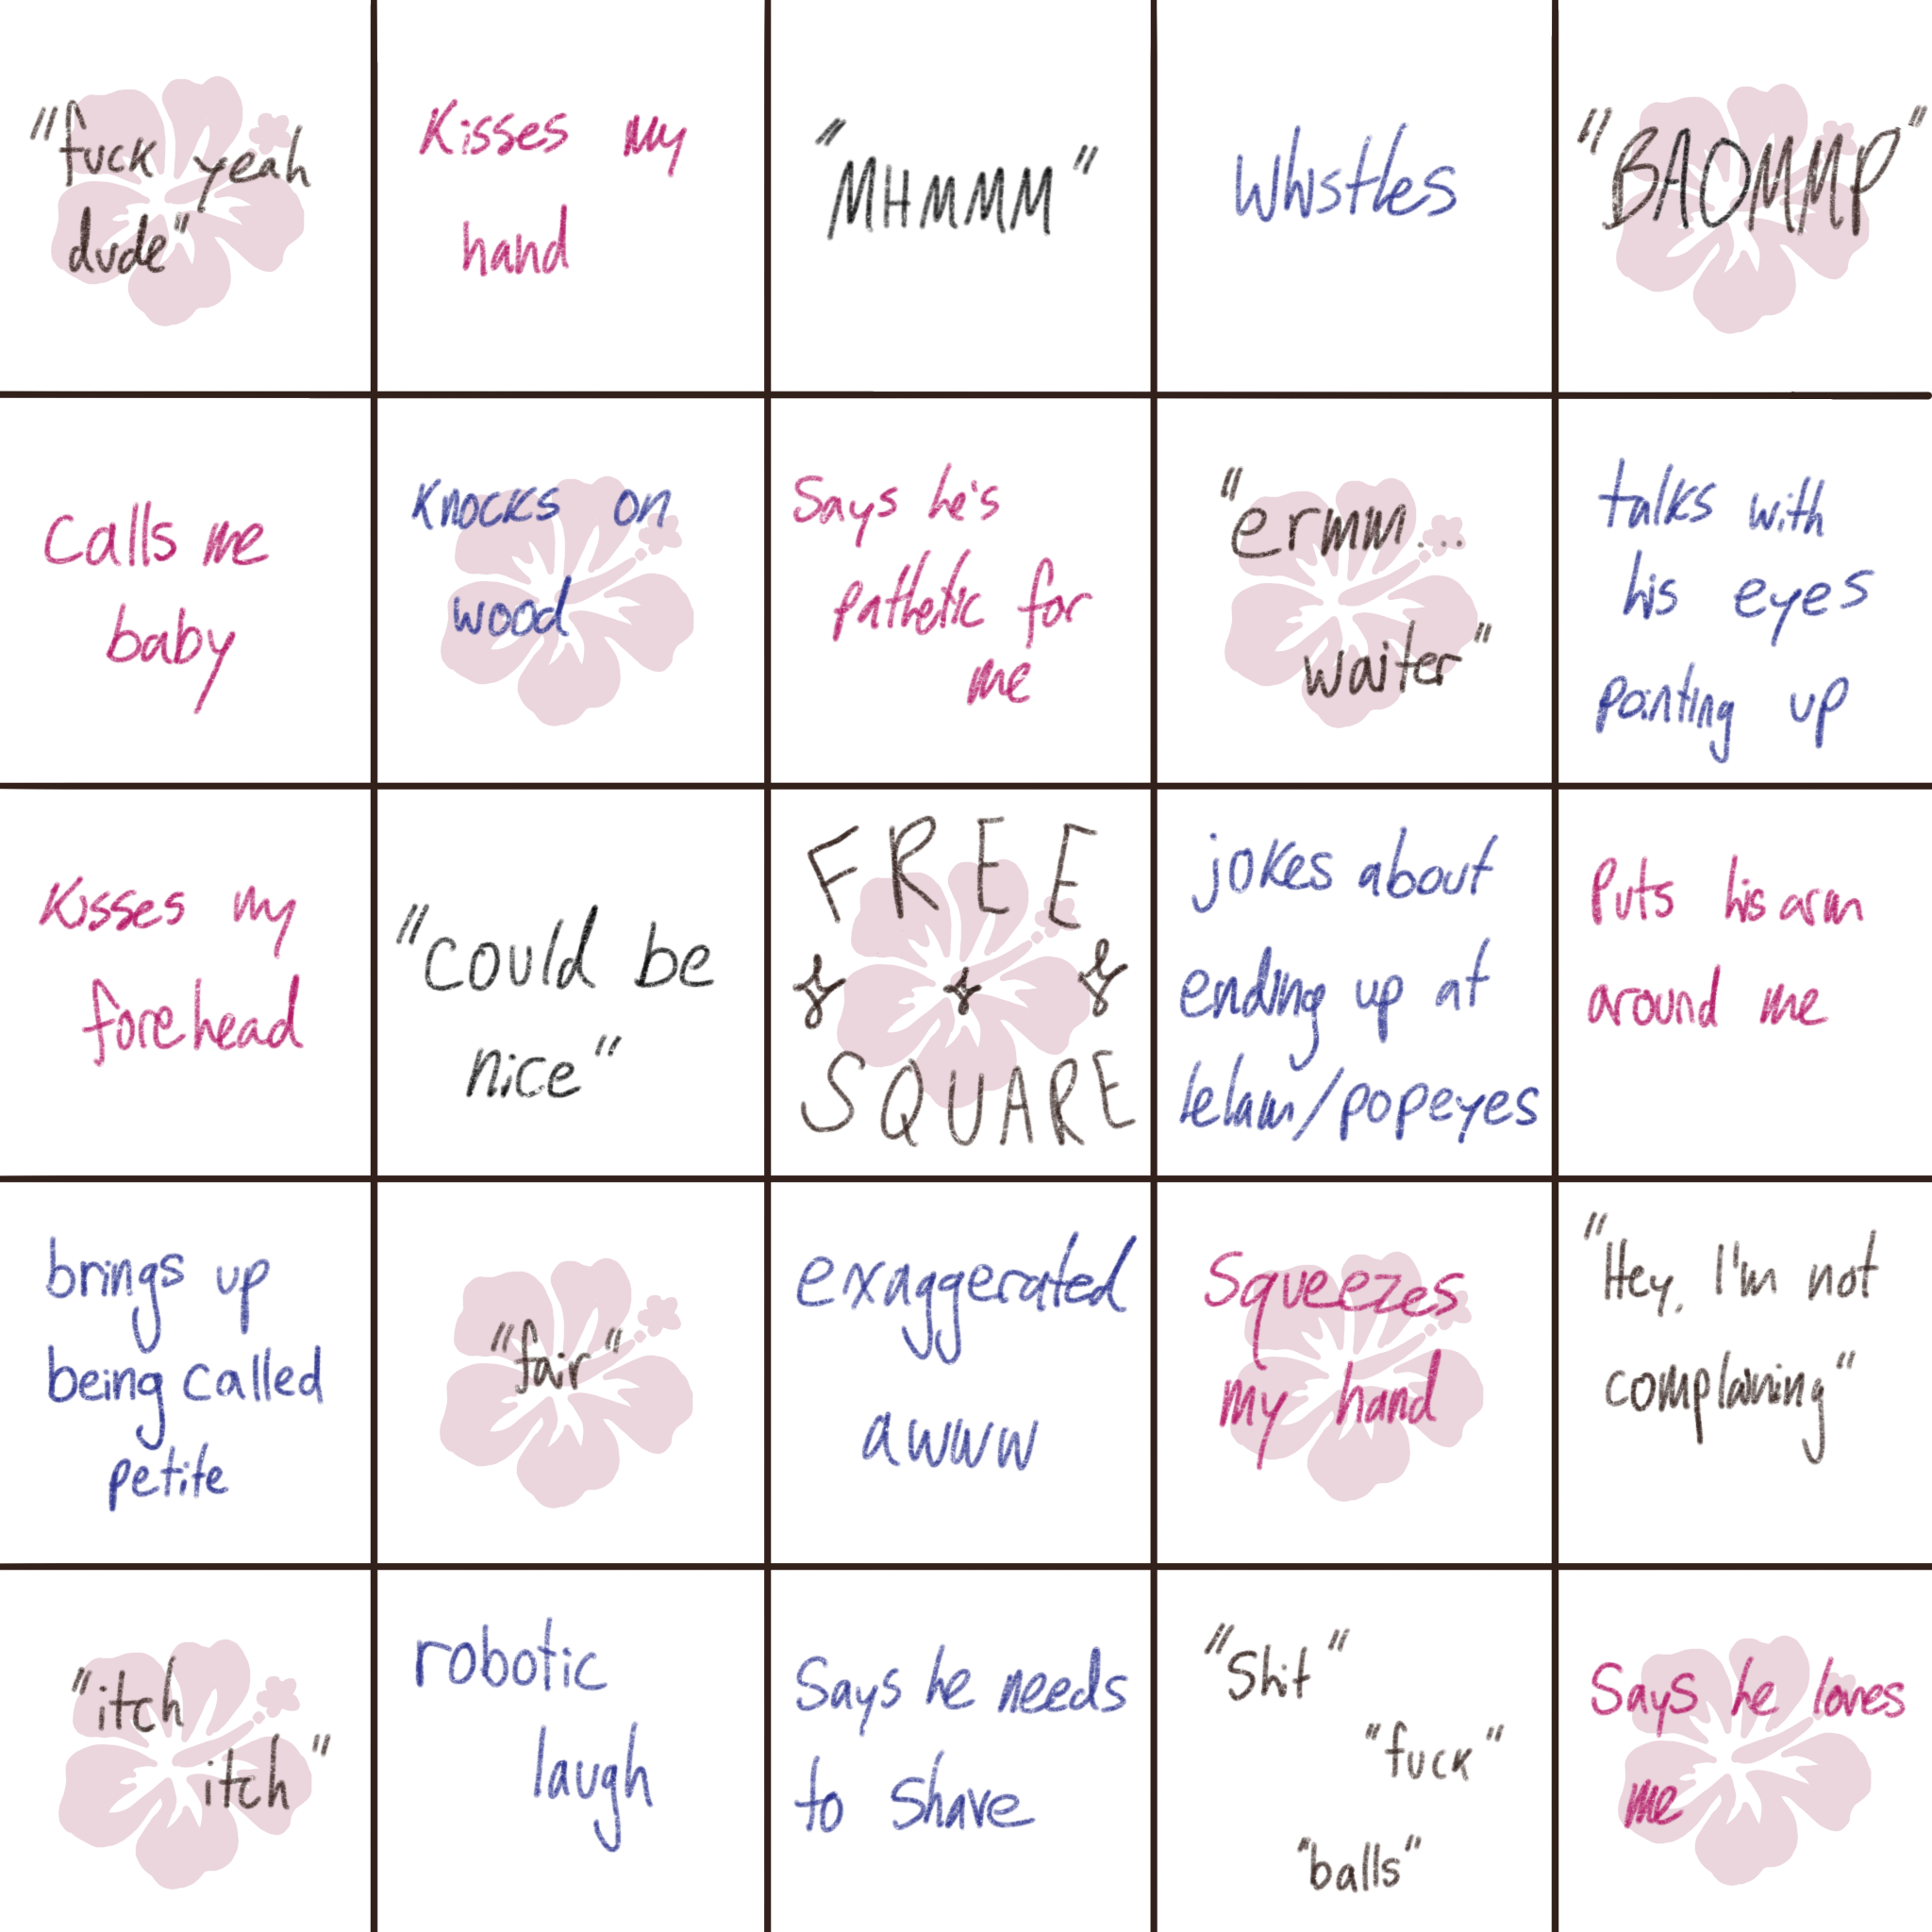 "fuck yeah
dude"
Kisses my
hand
"MHMMM"
Whistles
"BAOMMP"
Calls me
baby
Knocks on
wood
Says he's
pathetic for
me
"ermm...
waiter"
talks with
his eyes
pointing up
Kisses my
forehead
"could be
nice"
FREE
SQUARE
jokes about
ending up at
lelam/popeyes
Puts his arm
around me
brings up
being called
petite
"fair"
exaggerated
awww
Squeezes
my hand
"Hey, I'm not
complaining"
"itch
itch"
robotic
laugh
Says he needs
to shave
"Shit"
"fuck"
"balls"
Says he loves
me